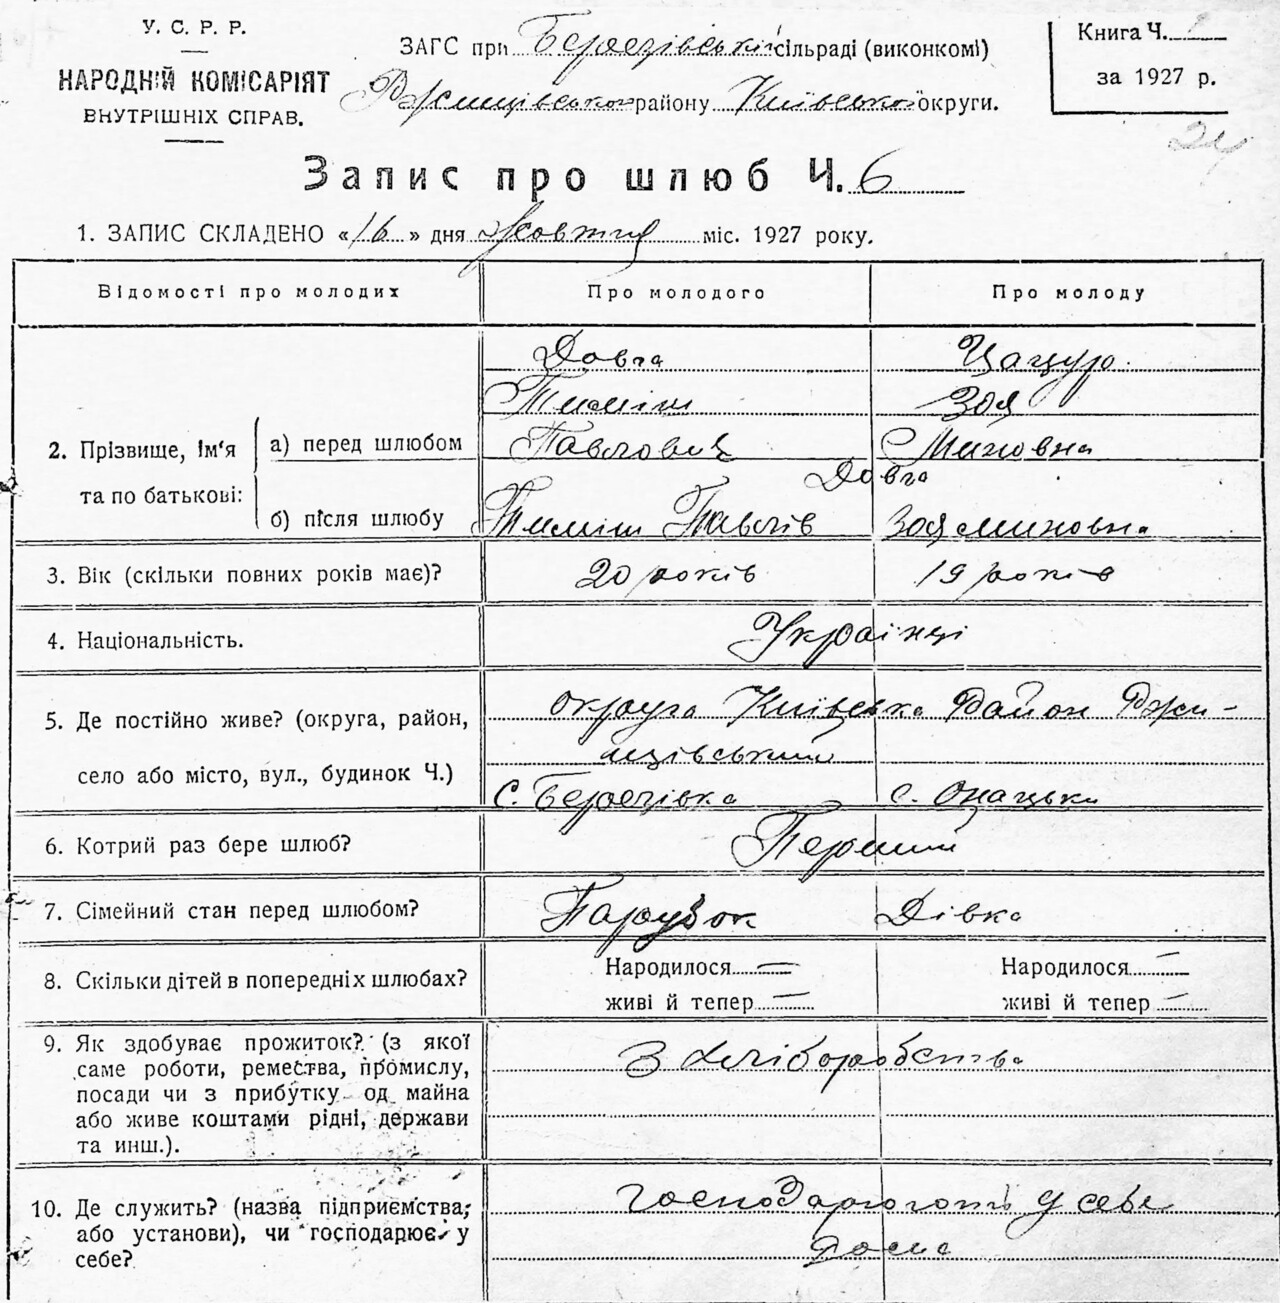 У. С. Р. Р.
НАРОДНІЙ КОМІСАРІЯТ
ВНУТРІШНІХ СПРАВ.
ЗАГС при Березівській сільраді (виконкомі)
Ржищівського району Київської округи.
Книга Ч.
за 1927 р.
24
Запис про шлюб Ч. 6
1. ЗАПИС СКЛАДЕНО «16» дня Жовтня міс. 1927 року.
Відомості про молодих Про молодого Про молоду
Довга Цацура
Тиміш Зоя
2. Прізвище, ім'я та по батькові: а) перед шлюбом Павлович Миновна
Довга
б) після шлюбу Тиміш Павлів Зоя Миновна
3. Вік (скільки повних років має)? 20 років 19 років
4. Національність. Українці
5. Де постійно живе? (округа, район, округа Київська Район Ржи-
село або місто, вул., будинок Ч.) щівський
С. Березівка с. Онацьки
6. Котрий раз бере шлюб? Перший
7. Сімейний стан перед шлюбом? Парубок Дівка
8. Скільки дітей в попередніх шлюбах? Народилося — Народилося —
живі й тепер — живі й тепер —
9. Як здобуває прожиток? (з якої З хліборобства
саме роботи, ремества, промислу,
посади чи з прибутку од майна
або живе коштами рідні, держави
та инш.).
10. Де служить? (назва підприємства, господарюють у себе
або установи), чи господарює у дома
себе?